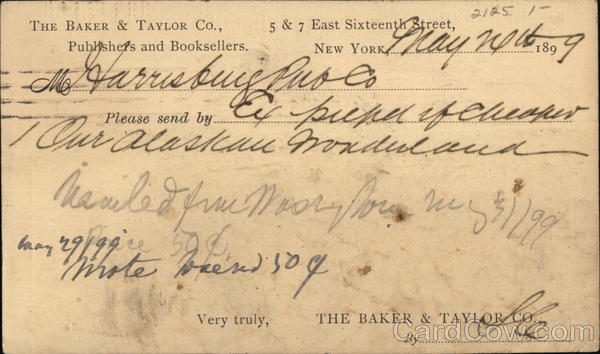 2125 1-
THE BAKER & TAYLOR CO., 5 & 7 East Sixteenth Street,
Publishers and Booksellers. NEW YORK, May 1899
M Harrisburg Pub Co
Please send by Ex prepd if cheaper
1 Our Alaskan Wonderland
Mailed from Washington May 31/99
Price 50¢
May 29/99
Wrote to send 50¢
Very truly, THE BAKER & TAYLOR CO.,
By
CardCow.com